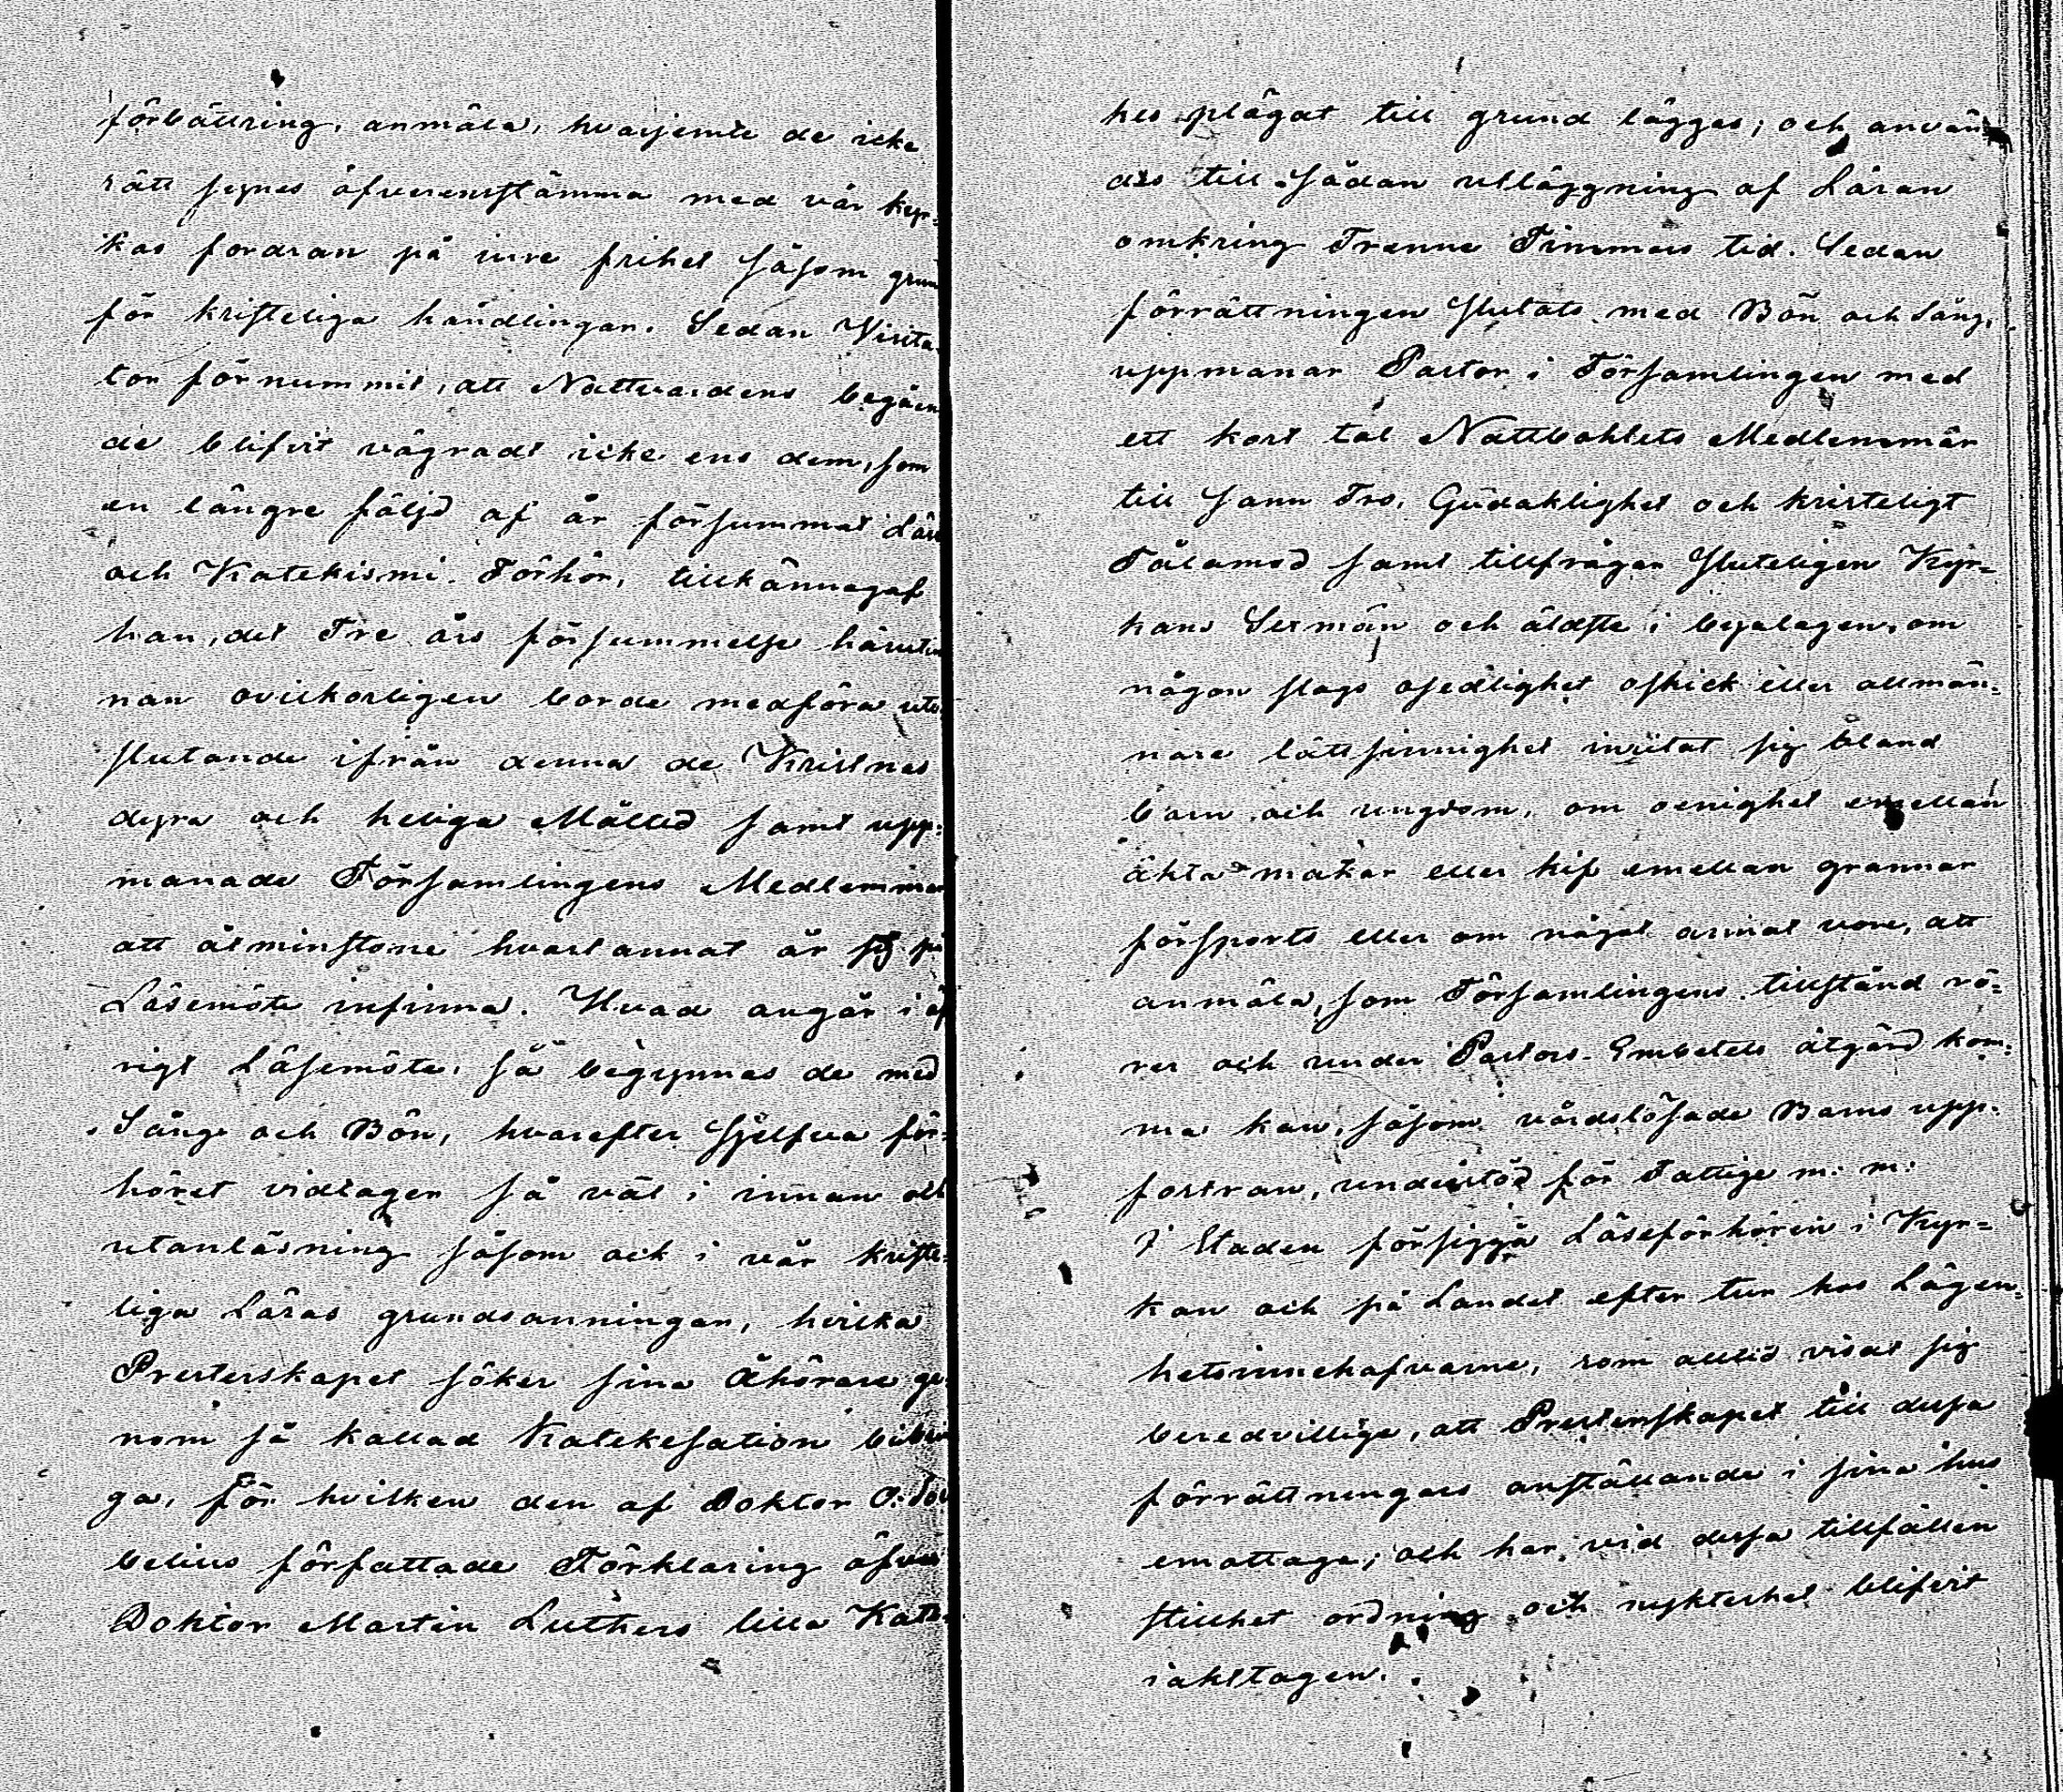 förbättring, anmäla, hvarjemte de icke
rätt synes öfverensstämma med vår kyr-
kas fordran på inre frihet såsom grun
för kristeliga handlingar. Sedan Visita-
tor förnummit, att Nattvardens begåen
de blifvit vägradt icke ens dem, som
en längre följd af år försummat Läse
och Katekismi-Förhör, tillkännagaf
han, det Tre års försummelse härut
nan ovilkorligen borde medföra ute-
slutande ifrån denna de Kristnes
dyra och heliga Måltid samt upp-
manade Församlingens Medlemmar
att åtminstone hvartannat år sig på
Läsemöte infinna. Hvad angår i öf
rigt Läsemöte, så begynnas de med
Sång och Bön, hvarefter sjelfva för-
höret vidtager så väl i innan och
utanläsning såsom ock i vår kriste-
liga Läras grundsanningar, hvilka
Presterskapet söker sina Åhörare ge-
nom så kallad Katekesation bibrin
ga, för hvilken den af Doktor O. Sve
belius författade Förklaring öfver
Doktor Martin Luthers lilla Kate-
hes plägat till grund lägges; och använ-
des till sådan utläggning af Läran
omkring Trenne Timmars tid. Sedan
förrättningen slutats med Bön och Sång,
uppmanar Pastor i Församlingen med
ett kort tal Nattbohlets Medlemmar
till sann Tro, Gudaktighet och kristeligt
Tålamod samt tillfrågar sluteligen Kyr-
kans Sexmän och äldste i byalagen, om
någon slags osedlighet oskick eller allmän-
nare lättsinnighet insutat sig bland
barn och ungdom, om oenighet emellan
äkta makar eller kif emellan grannar
försports eller om något annat vore, att
anmäla, som Församlingens tillstånd rö-
rer och under Pastors-Embetets åtgärd kom-
ma kan, såsom vårdslösade Barns upp-
fostran, understöd för Fattige m. m.
I Staden försiggå Läseförhören i Kyr-
kan och på Landet efter tur hos Lägen-
hetsinnehafvarne, som alltid visat sig
beredvillige, att Presterskapet till dessa
förrättningars anställande i sina hus
emottaga; och har vid dessa tillfällen
stillhet ordning och nykterhet blifvit
iakttagen.